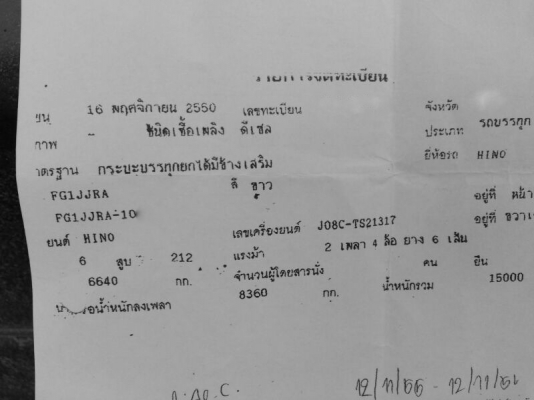 รายการจดทะเบียน
16 พฤศจิกายน 2550 เลขทะเบียน จังหวัด
ภาพ - ชนิดเชื้อเพลิง ดีเซล ประเภท รถบรรทุก
มาตรฐาน กระบะบรรทุกยกได้มีข้างเสริม ยี่ห้อรถ HINO
FG1JJRA สี ขาว อยู่ที่ หน้า
FG1JJRA-10 เลขเครื่องยนต์ J08C-TS21317 อยู่ที่ ขวา
ยนต์ HINO
6 สูบ 212 แรงม้า 2 เพลา 4 ล้อ ยาง 6 เส้น
6640 กก. จำนวนผู้โดยสารนั่ง คน ยืน
8360 กก. น้ำหนักรวม 15000
น้ำหนักลงเพลา
12/11/56 - 12/11/